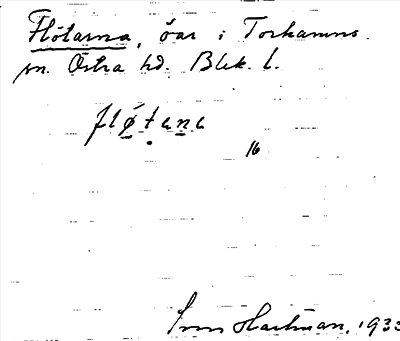 Flötarna, öar i Torhamns
sn. Östra hd. Blek. l.
16
Hartman, 1933